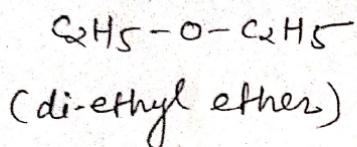 C2H5-O-C2H5
(di-ethyl ether)